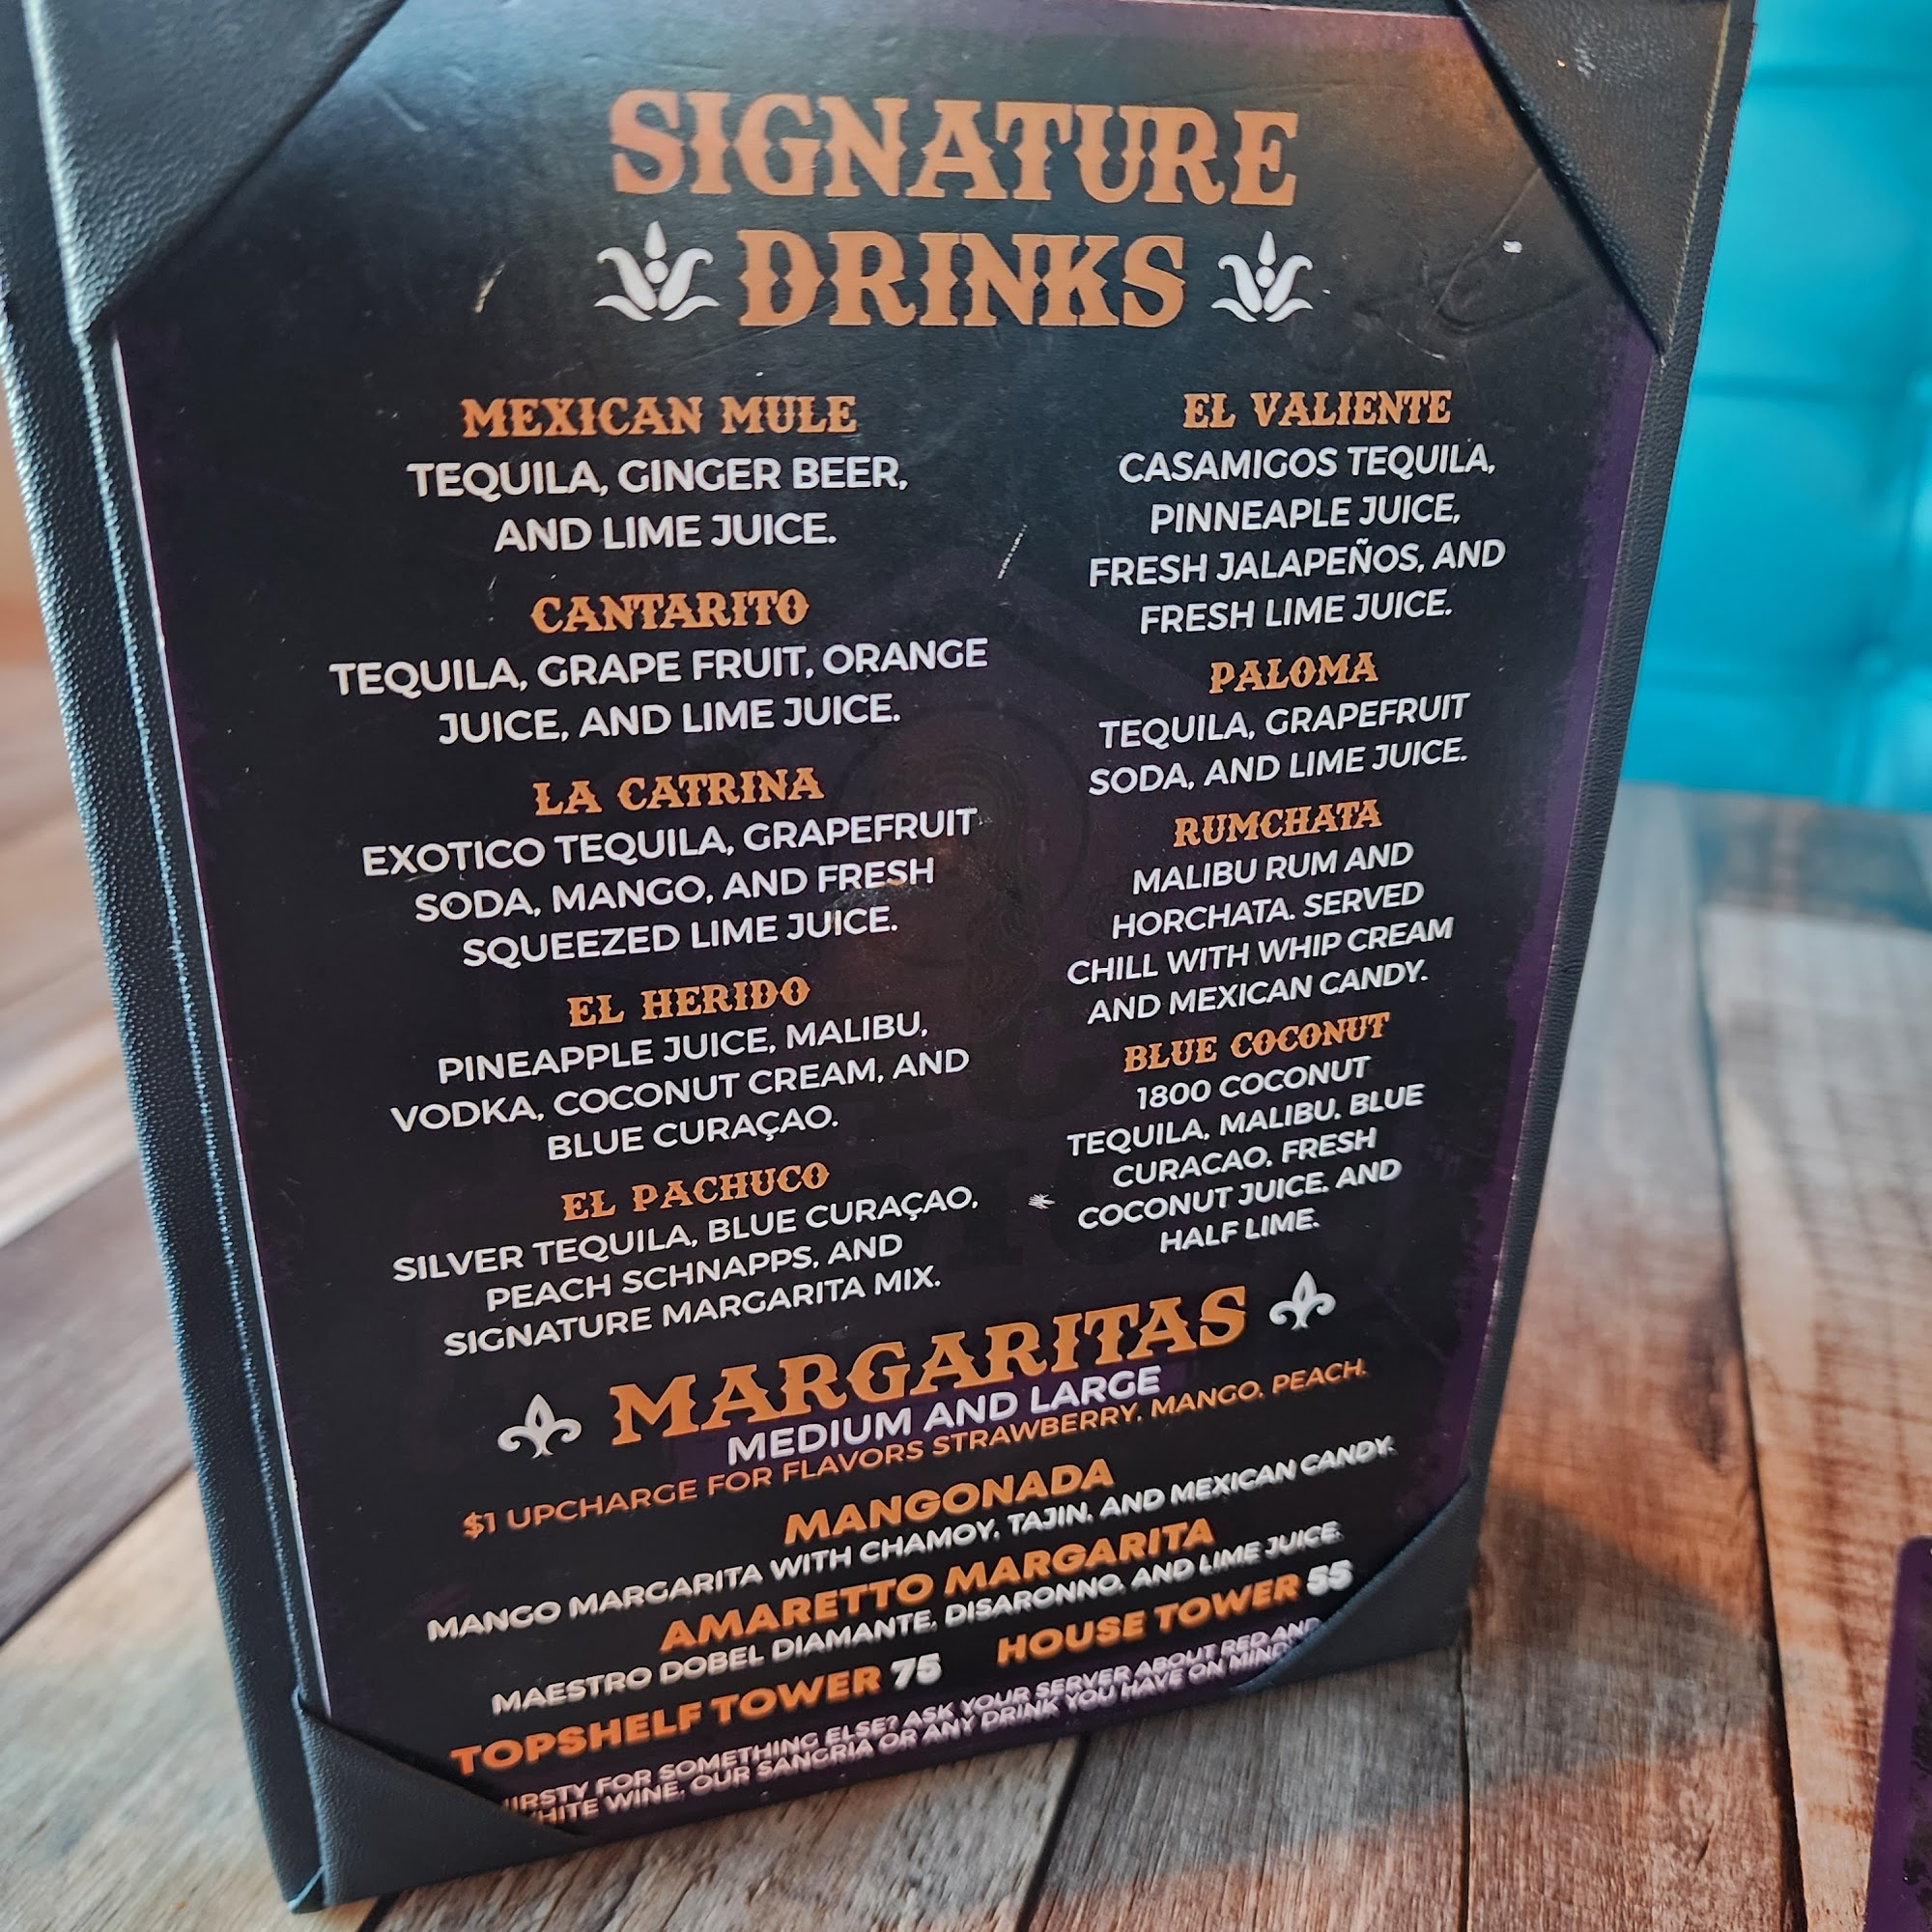 SIGNATURE
DRINKS
MEXICAN MULE
TEQUILA, GINGER BEER,
AND LIME JUICE.
CANTARITO
TEQUILA, GRAPE FRUIT, ORANGE
JUICE, AND LIME JUICE.
LA CATRINA
EXOTICO TEQUILA, GRAPEFRUIT
SODA, MANGO, AND FRESH
SQUEEZED LIME JUICE.
EL HERIDO
PINEAPPLE JUICE, MALIBU,
VODKA, COCONUT CREAM, AND
BLUE CURAÇAO.
EL PACHUCO
SILVER TEQUILA, BLUE CURAÇAO,
PEACH SCHNAPPS, AND
SIGNATURE MARGARITA MIX.
EL VALIENTE
CASAMIGOS TEQUILA,
PINNEAPLE JUICE,
FRESH JALAPEÑOS, AND
FRESH LIME JUICE.
PALOMA
TEQUILA, GRAPEFRUIT
SODA, AND LIME JUICE.
RUMCHATA
MALIBU RUM AND
HORCHATA. SERVED
CHILL WITH WHIP CREAM
AND MEXICAN CANDY.
BLUE COCONUT
1800 COCONUT
TEQUILA, MALIBU, BLUE
CURACAO, FRESH
COCONUT JUICE, AND
HALF LIME.
MARGARITAS
MEDIUM AND LARGE
$1 UPCHARGE FOR FLAVORS STRAWBERRY, MANGO, PEACH.
MANGONADA
MANGO MARGARITA WITH CHAMOY, TAJIN, AND MEXICAN CANDY.
AMARETTO MARGARITA
MAESTRO DOBEL DIAMANTE, DISARONNO, AND LIME JUICE.
TOPSHELF TOWER 75 HOUSE TOWER 55
FOR SOMETHING ELSE? ASK YOUR SERVER ABOUT RED AND
WINE, OUR SANGRIA OR ANY DRINK YOU HAVE ON MIND